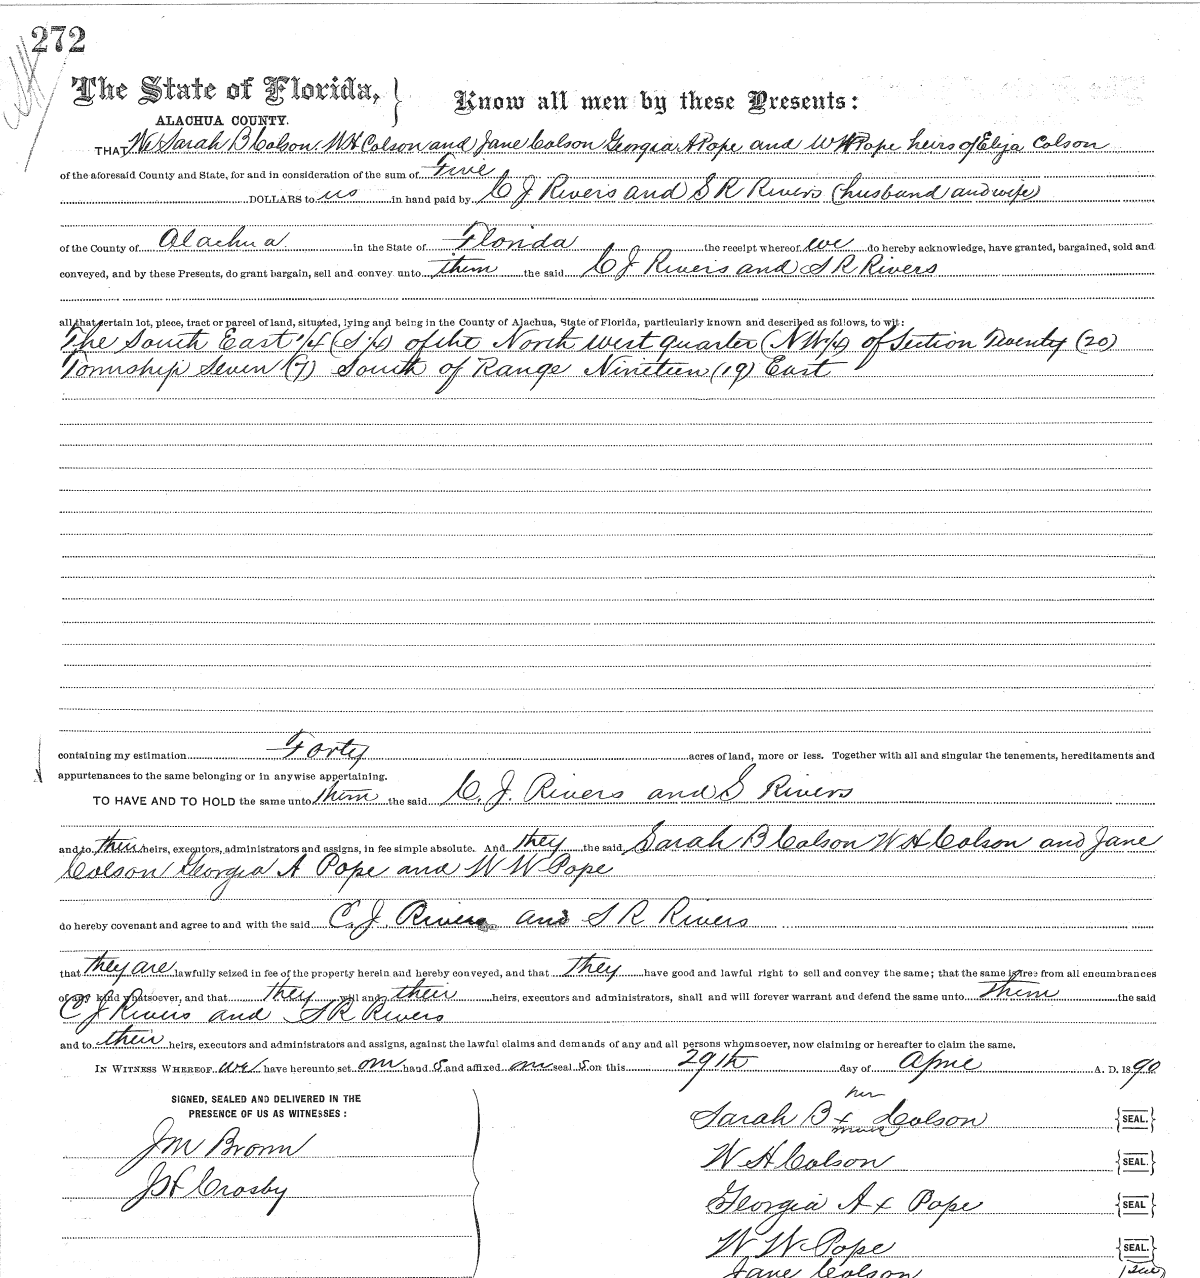 272
The State of Florida, }
ALACHUA COUNTY.
Know all men by these Presents:
THAT We Sarah B Colson. W H Colson and Jane Colson Georgia A Pope and W W Pope heirs of Elija Colson
of the aforesaid County and State, for and in consideration of the sum of Five
DOLLARS to us in hand paid by C J Rivers and S R Rivers (husband and wife)
of the County of Alachua in the State of Florida the receipt whereof we do hereby acknowledge, have granted, bargained, sold and
conveyed, and by these Presents, do grant bargain, sell and convey unto them the said C J Rivers and S R Rivers
all that certain lot, piece, tract or parcel of land, situated, lying and being in the County of Alachua, State of Florida, particularly known and described as follows, to wit:
The South East 1/4 (S 1/4) of the North west quarter (N W 1/4) of Section Twenty (20)
Township Seven (7) South of Range Nineteen (19) East
containing my estimation Forty acres of land, more or less. Together with all and singular the tenements, hereditaments and
appurtenances to the same belonging or in anywise appertaining.
TO HAVE AND TO HOLD the same unto them the said C. J. Rivers and S Rivers
and to their heirs, executors, administrators and assigns, in fee simple absolute. And they the said Sarah B Colson W H Colson and Jane
Colson Georgia A Pope and W W Pope
do hereby covenant and agree to and with the said C. J. Rivers and S R Rivers
that they are lawfully seized in fee of the property herein and hereby conveyed, and that they have good and lawful right to sell and convey the same; that the same is free from all encumbrances
of any kind whatsoever, and that they will and their heirs, executors and administrators, shall and will forever warrant and defend the same unto them the said
C J Rivers and S R Rivers
and to their heirs, executors and administrators and assigns, against the lawful claims and demands of any and all persons whomsoever, now claiming or hereafter to claim the same.
IN WITNESS WHEREOF we have hereunto set our hand s and affixed our seal s on this 29th day of April A. D. 1890
SIGNED, SEALED AND DELIVERED IN THE
PRESENCE OF US AS WITNESSES:
J M Brown
J H Crosby
her
Sarah B x Colson {SEAL.}
mark
W H Colson {SEAL.}
Georgia A x Pope {SEAL}
W W Pope {SEAL.}
Jane Colson